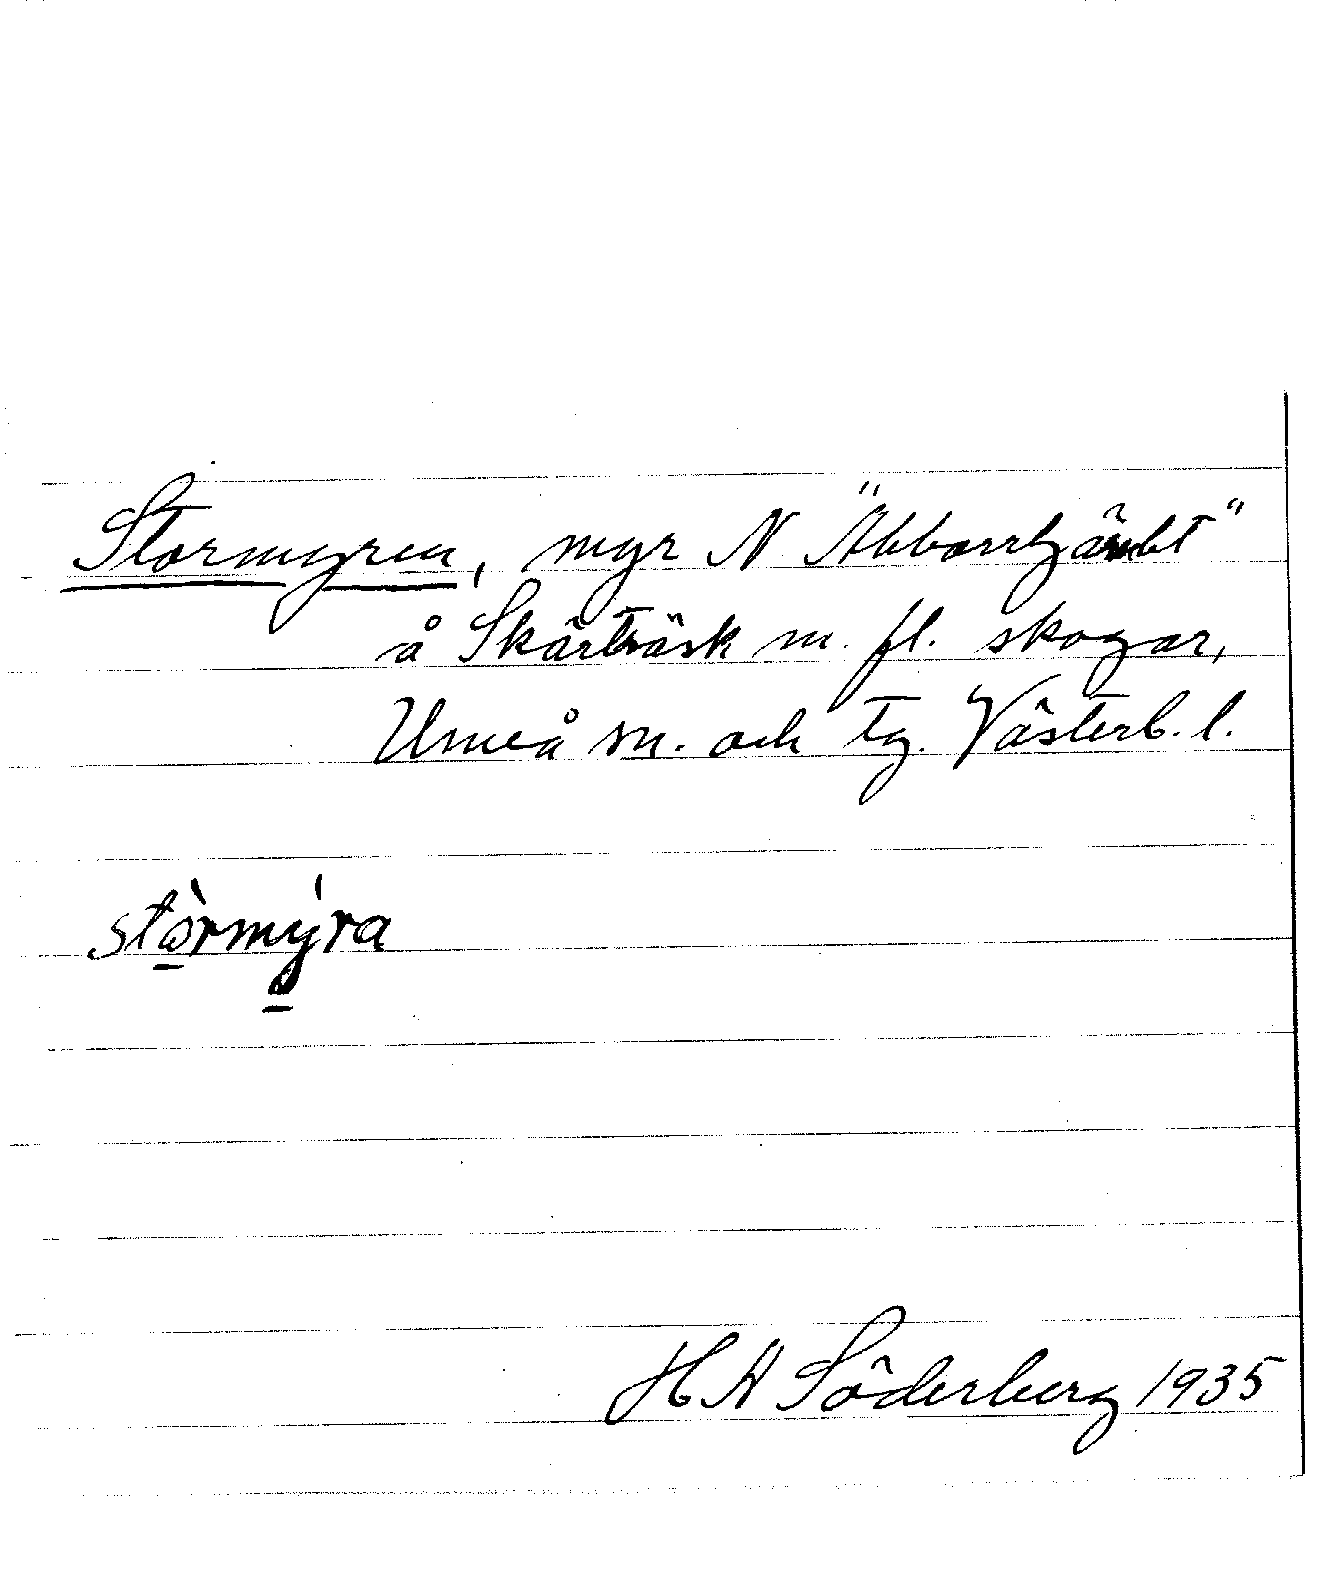 Stormyren, myr N "Abborrtjärnbt"
å Skärträsk m. fl. skogar,
Umeå sn. och tg. Västerb. l.
stòrmýra
H A Söderberg 1935